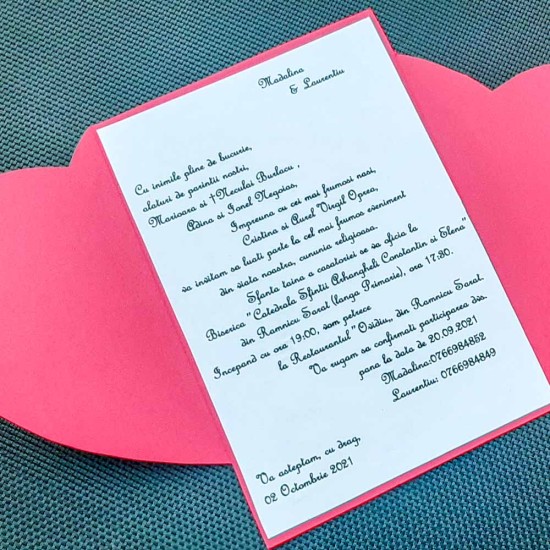 Madalina
& Laurentiu
Cu inimile pline de bucurie,
alaturi de parintii nostri,
Marioara si †Neculai Burlacu ,
Adina si Ionel Negoias,
Impreuna cu cei mai frumosi nasi,
Cristina si Aurel Virgil Oprea,
va invitam sa luati parte la cel mai frumos eveniment
din viata noastra, cununia religioasa.
Sfanta taina a casatoriei se va oficia la
Biserica "Catedrala Sfintii Arhangheli Constantin si Elena"
din Ramnicu Sarat (langa Primarie), ora 17:30.
Incepand cu ora 19:00, vom petrece
la Restaurantul "Ovidiu,, din Ramnicu Sarat.
Va rugam sa confirmati participarea dvs.
pana la data de 20.09.2021
Madalina:0766984862
Laurentiu: 0766984849
Va asteptam, cu drag,
02 Octombrie 2021